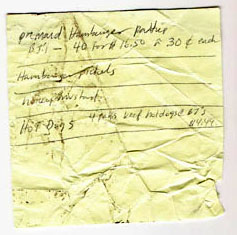 premaid Hamburger Patties
BJ's - 40 for $16.50 @ 30¢ each
Hamburger pickels
honey mustard
Hot Dogs 4 pags beef hotdogs BJ's
$4.49